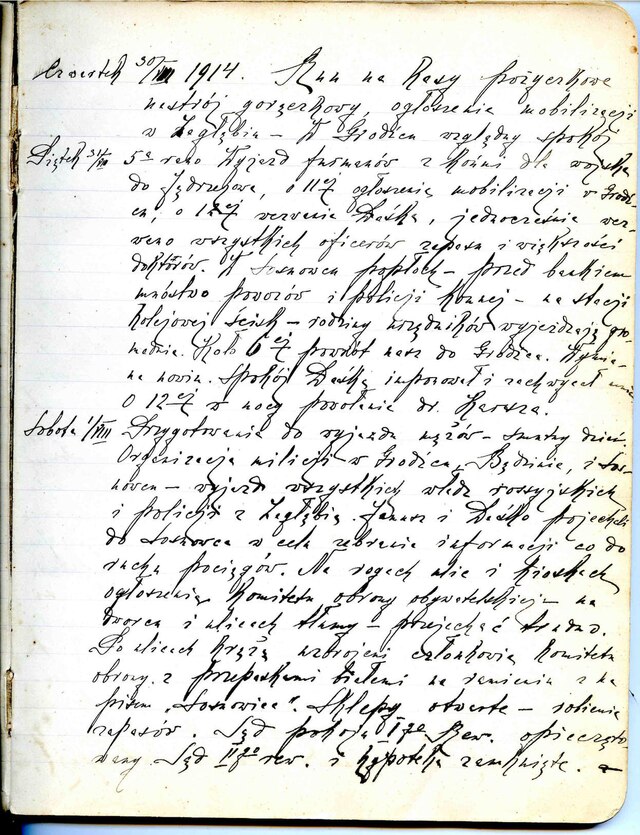 Czwartek 30/VII 1914. Run na Kasy pożyczkowe
nastrój gorączkowy, ogłoszenie mobilizacji
w Zagłębiu – W Grodźcu względny spokój
Piątek 31/VII 5a rano Wyjazd furmanów z końmi dla wojska
do Jędrzejowa, o 11ej ogłoszenie mobilizacji w Grodź-
cu, o 12ej wezwanie Daśka, jednocześnie wez-
wano wszystkich oficerów zapasu i większości
doktorów. W Sosnowcu popłoch – przed bankiem
mnóstwo powozów i policji konnej – na stacji
kolejowej ścisk – rodziny urzędników wyjeżdżają gro-
madnie. Koło 6ej powrót nasz do Grodźca. Wymia-
na nowin. Spokój Daśka imponował i zachwycał
O 12ej w nocy powołanie dr.
Sobota 1/VIII Przygotowania do wyjazdu mężów – smutny dzień.
Organizacja milicji w Grodźcu, Będzinie, i Sos-
nowcu – wyjazd wszystkich władz rossyjskich
i policji z Zagłębia. Janusz i Daśko pojechali
do Sosnowca w celu zebrania informacji co do
ruchu pociągów. Na rogach ulic i kioskach
ogłoszenia Komitetu obrony obywatelskiej – na
dworcu i ulicach tłumy – przejechać trudno.
Po ulicach krążą uzbrojeni członkowie Komitetu
obrony z przepaskami białemi na ramieniu z na
pisem „Sosnowice". Sklepy otwarte – robienie
zapasów. Sąd pokoju I go rew. opieczęto
wany Sąd II go rew. i hypoteka zamknięte. –